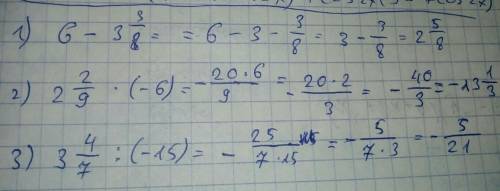 1) 6 - 3 3/8 = = 6 - 3 - 3/8 = 3 - 3/8 = 2 5/8
2) 2 2/9 · (-6) = - 20·6/9 = - 20·2/3 = - 40/3 = -13 1/3
3) 3 4/7 : (-15) = - 25/7·15 = - 5/7·3 = - 5/21